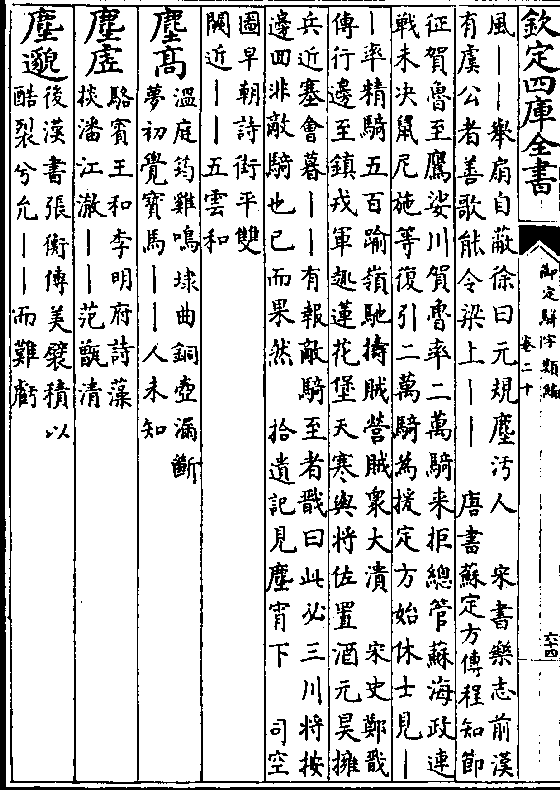 欽定四庫全書
御定駢字類編
卷二十
六十四
風｜｜舉扇自蔽徐曰元規塵汚人　宋書樂志前漢
有虞公者善歌能令梁上｜｜　唐書蘇定方傳程知節
征賀魯至鷹娑川賀魯率二萬騎来拒總管蘇海政連
戰未决鼠尼施等復引二萬騎為援定方始休士見｜
｜率精騎五百踰嶺馳擣賊營賊衆大潰　宋史鄭戩
傳行邊至鎮戎軍趣蓮花堡天寒與将佐置酒元昊擁
兵近塞會暮｜｜有報敵騎至者戩曰此必三川将按
邊回非敵騎也已而果然　拾遺記見塵宵下　司空
圖早朝詩街平雙
闕近｜｜五雲和
塵高
温庭筠雞鳴埭曲銅壺漏斷
夢初覺寶馬｜｜人未知
塵虛
駱賓王和李明府詩藻
掞潘江澈｜｜范甑清
塵邈
後漢書張衡傳美襞積以
酷裂兮允｜｜而難虧